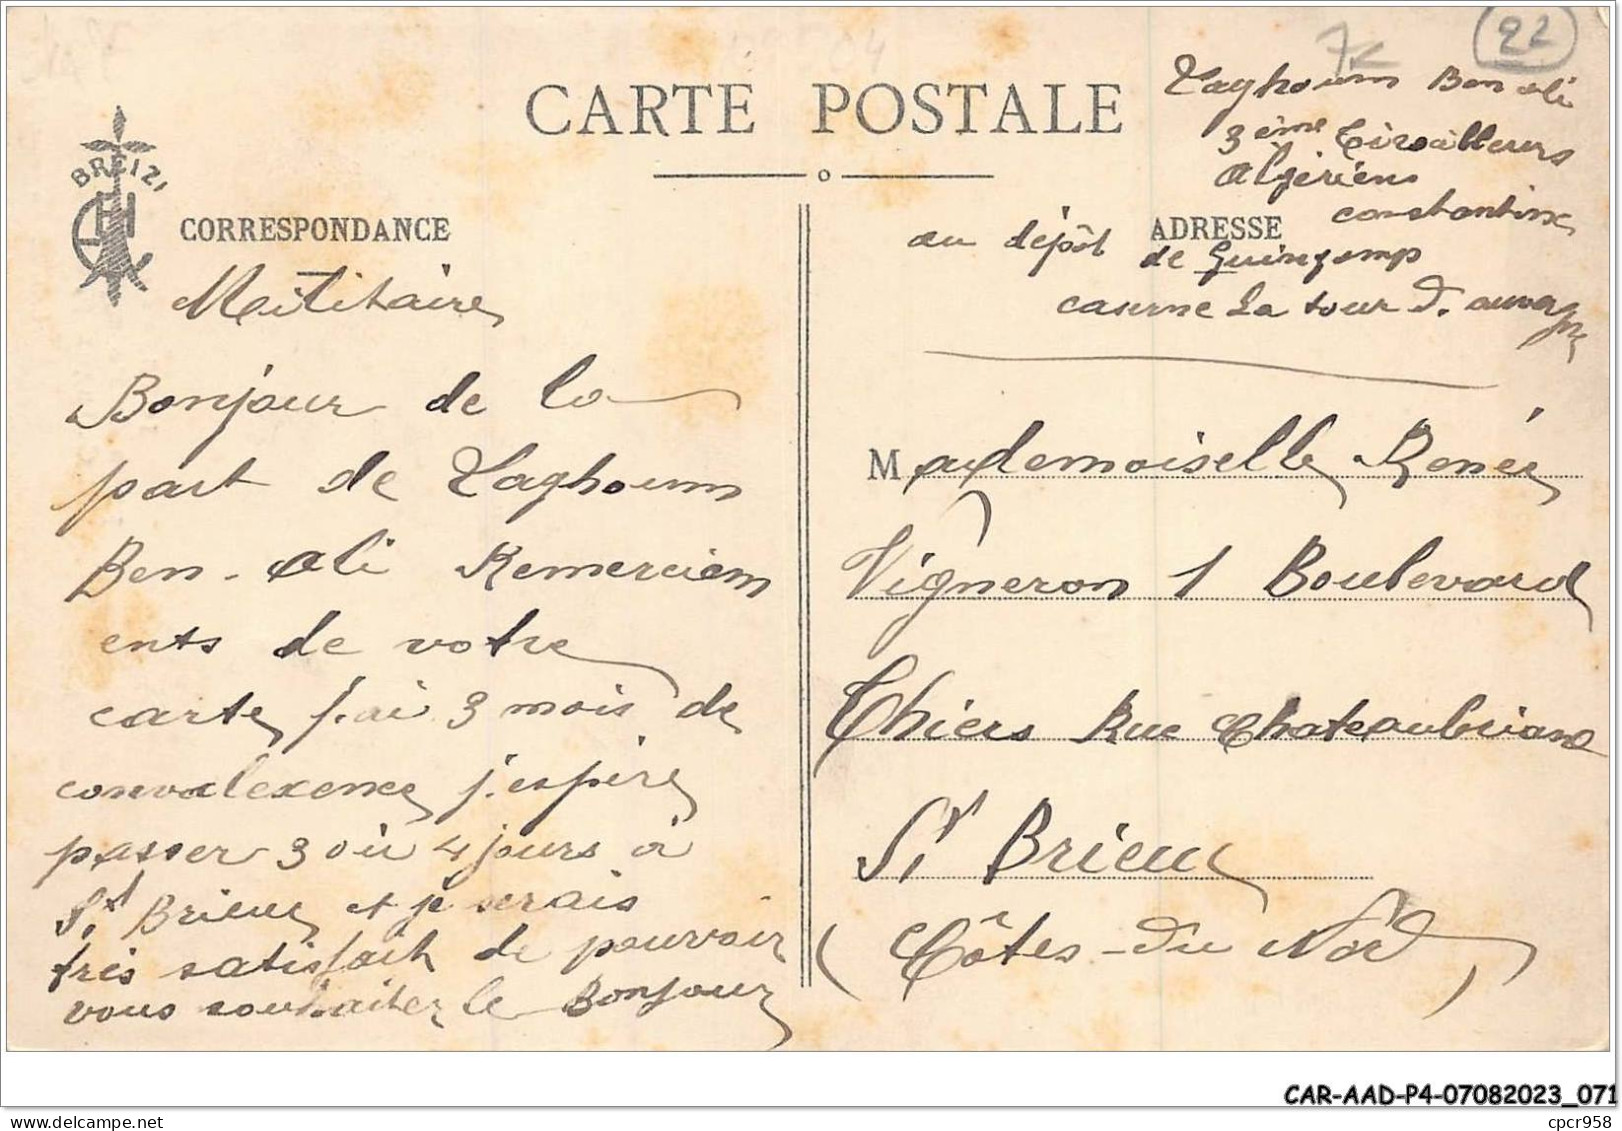 22
CARTE POSTALE
Laghoum Ben ali
3ème Tirailleurs
algériens
constantine
au dépôt
de Guingamp
caserne La tour d. auvergne
BREIZ IZI
CORRESPONDANCE
ADRESSE
Militaire
Bonjour de la
part de Laghoum
Ben-ali Remerciem
ents de votre
carte j.ai 3 mois de
convalexence j.espère
passer 3 où 4 jours à
St Brieuc et je serais
très satisfait de pouvoir
vous souhaiter le Bonjour
Mademoiselle Renée
Vigneron 1 Boulevard
Thiers Rue Chateaubriand
St Brieuc
(Côtes-du Nord)
CAR-AAD-P4-07082023_071
cpcr958